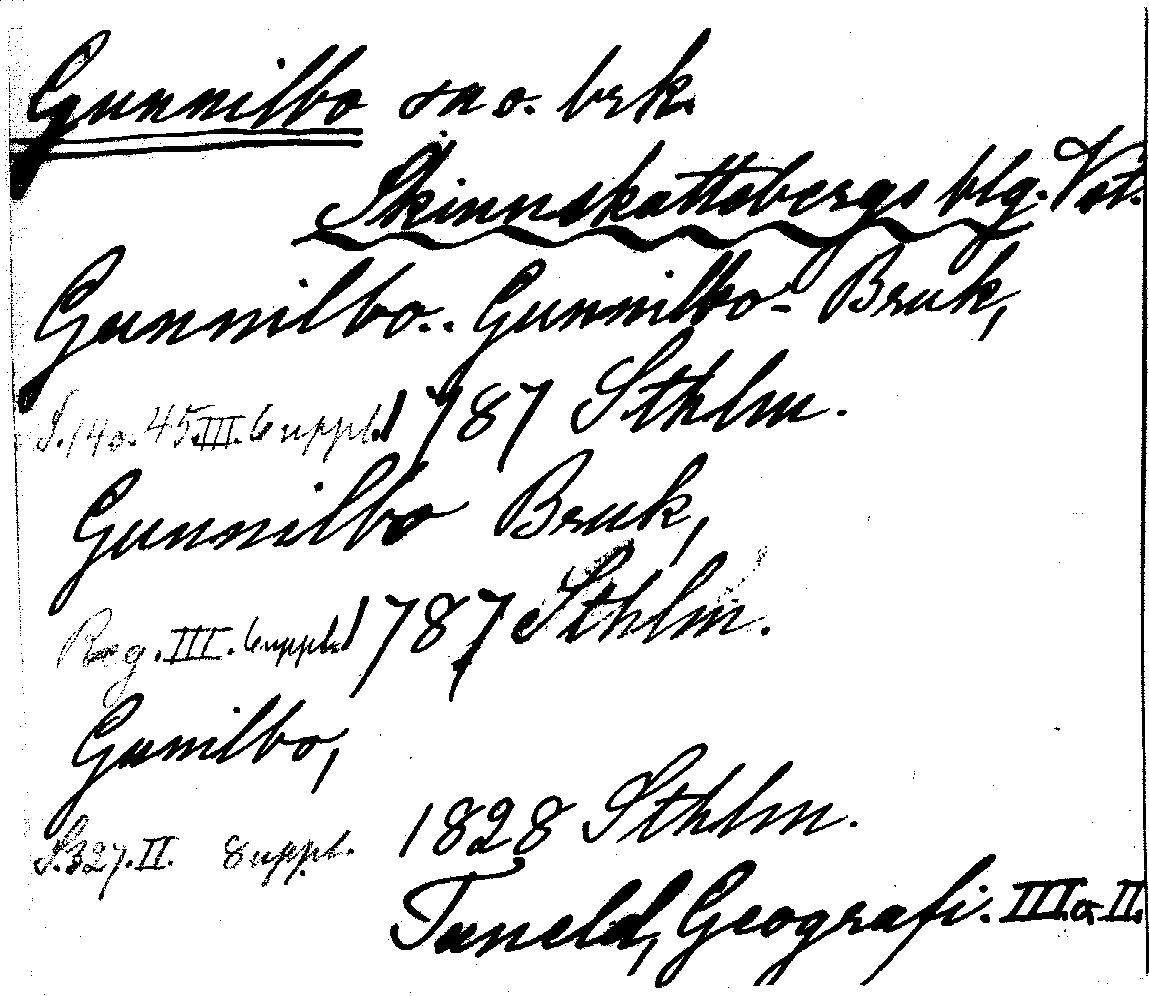 Gunnilbo sn o. brk.
Skinnskattebergs blg. Vstl.
Gunnilbo.. Gunnilbo- Bruk,
S. 14 o. 45. III. 6 uppl. 1787 Sthlm.
Gunnilbo Bruk,
Reg. III. 6 uppl. 1787 Sthlm.
Gunilbo,
S. 327. II. 8 uppl. 1828 Sthlm.
Tuneld, Geografi. III. o. II.